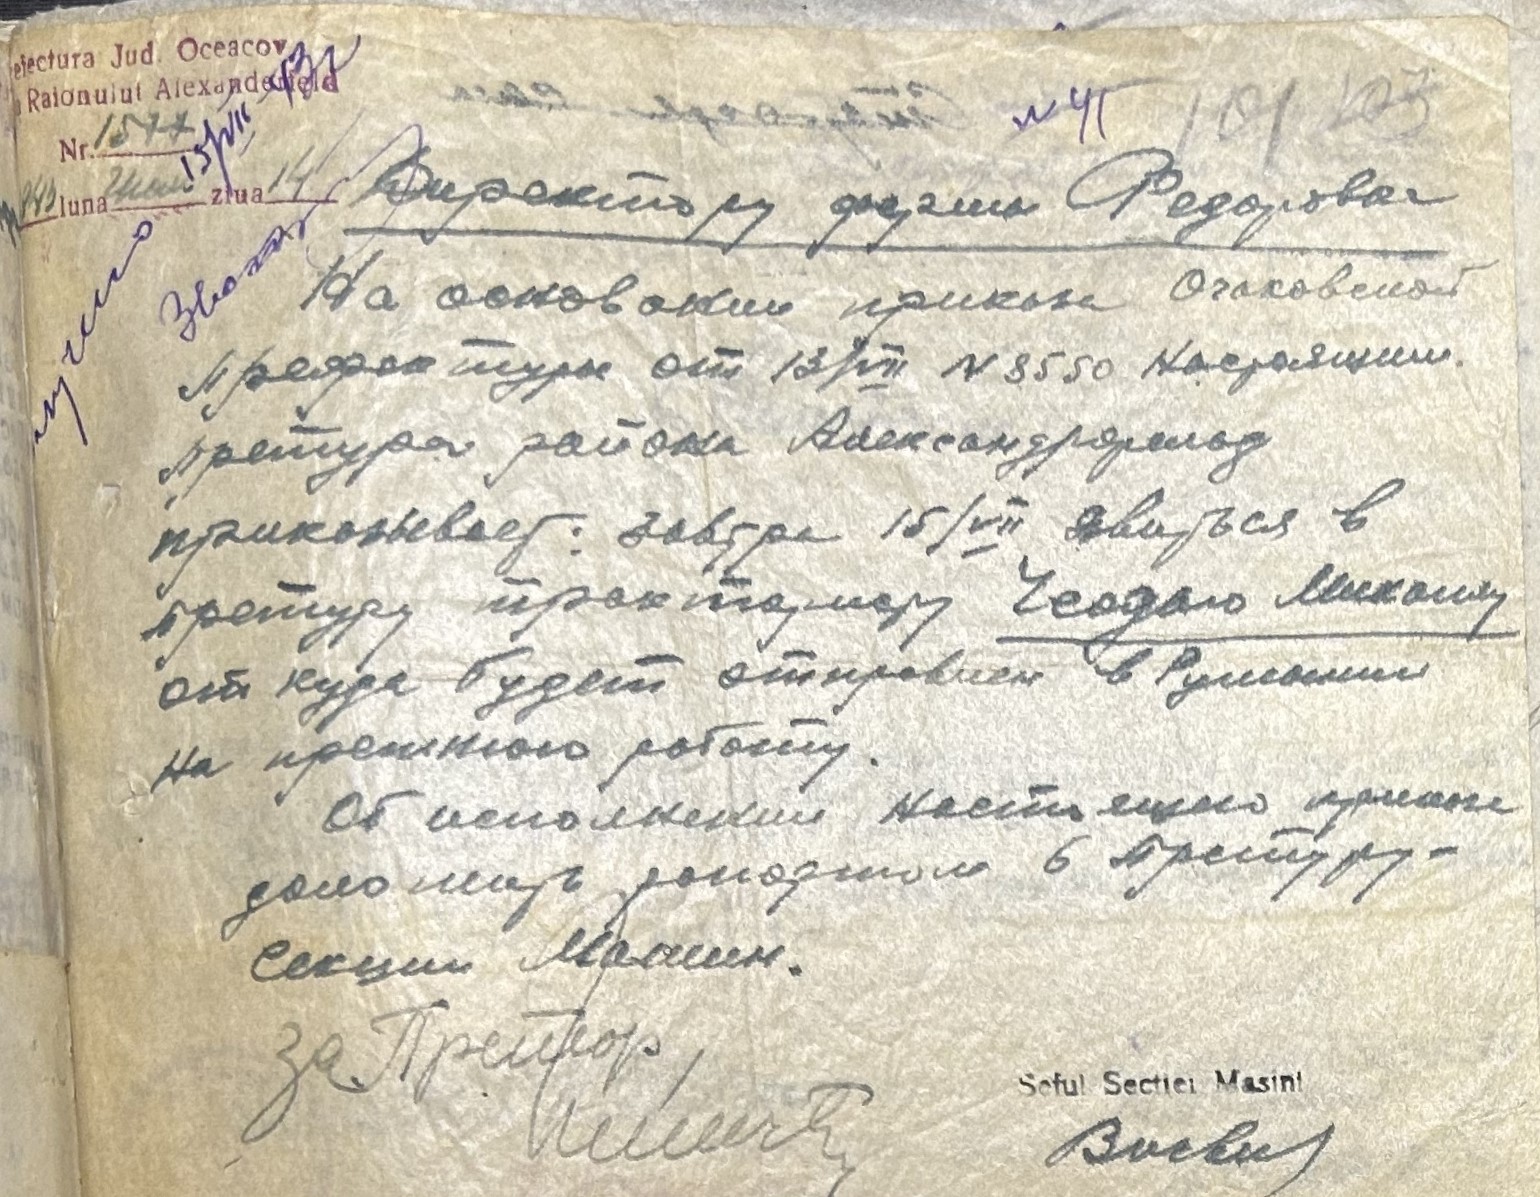 Prefectura Jud. Oceacov
Raionului Alexanderfeld
Nr. 1577
943 luna Июль ziua 14
15/VII 43 г
№ 45
101 103
Директору фермы Федоровка
На основании приказа Очаковской
Префектуры от 13/VII N 8550 Настоящим
Претура района Александрфельд
приказывает: завтра 15/VII явиться в
претуру трактористу Чеодаю Миколаю
от куда будет отправлен в Румынии
на прежнюю работу.
Об исполнении настоящего приказа
доложить рапортом в Претуру-
Секции Машин.
За Претор
Seful Sectiei Masini